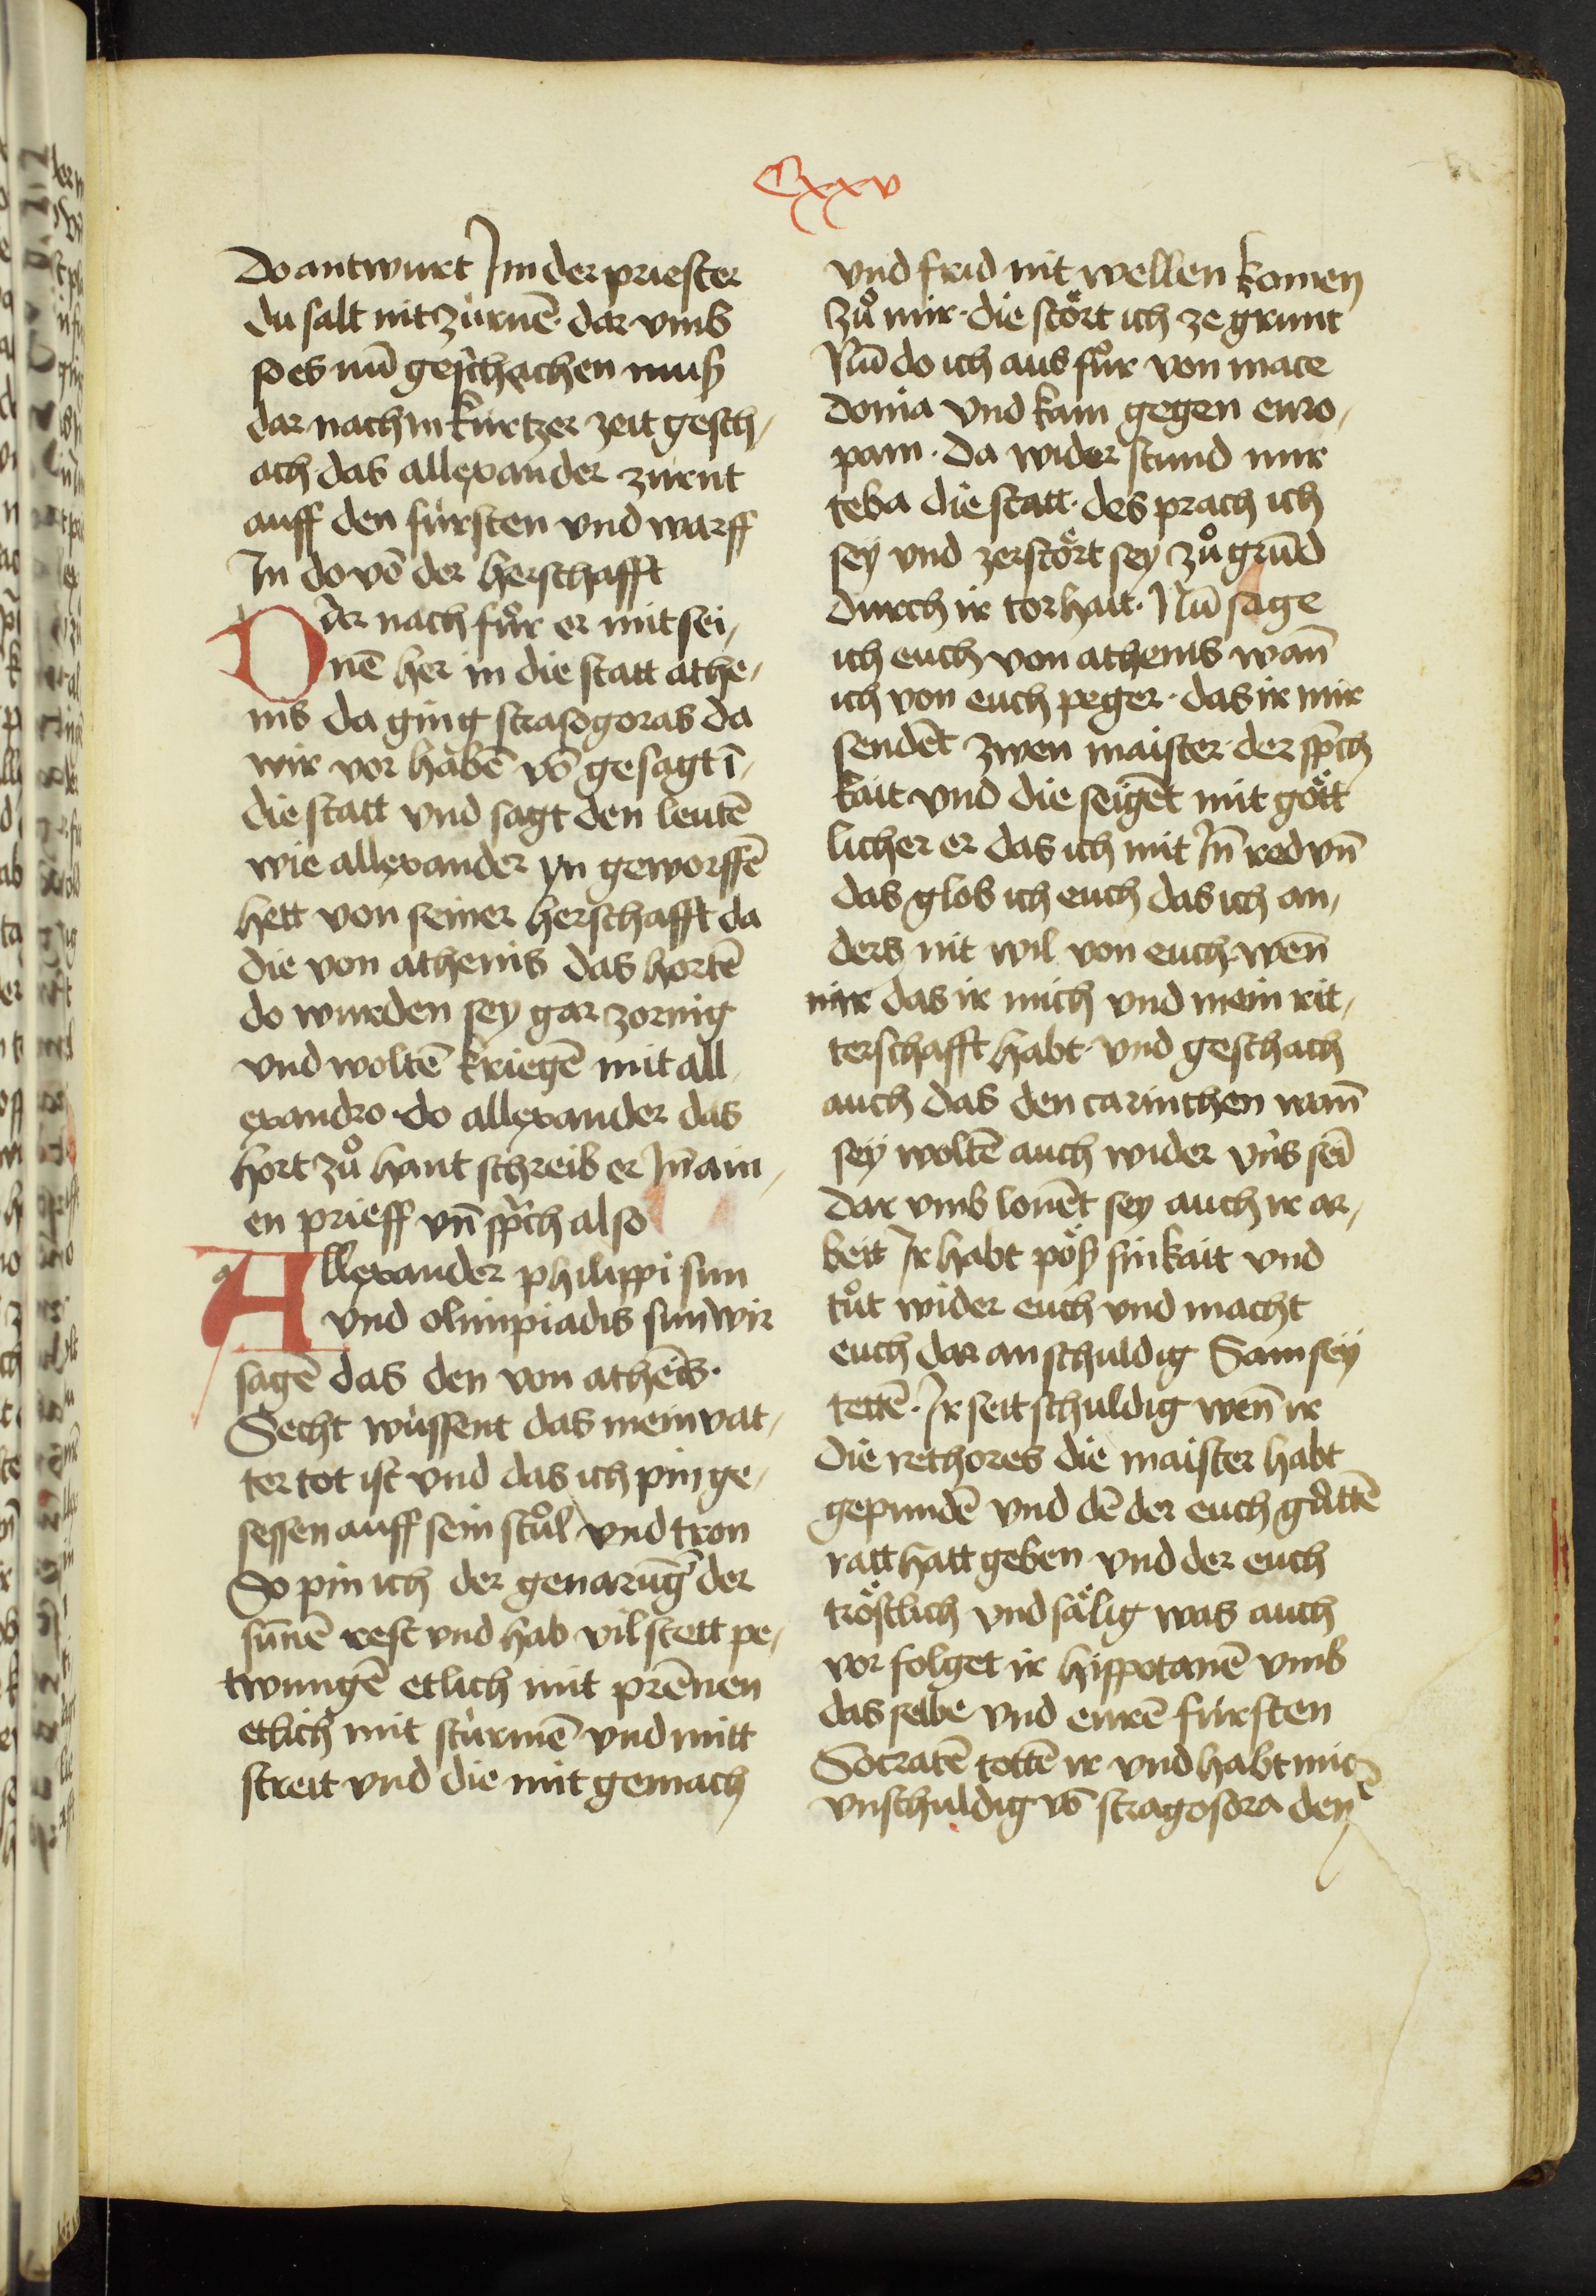 Cxxv
Do antwurt Im der priester
du salt nit zürnē · dar vmb
so es nū geschachen muß
dar nach in kurtzer zeit gesch,
ach · das allexander zürnt
auff den fürsten vnd warff
In do vō der herschafft
Der nach fůr er mit sei,
nē her in die statt athe,
nis da ging strasogoras da
wir vor habē vō gesagt ī,
die statt vnd sagt den leutē
wie allexander yn geworffē
hett von seiner herschafft da
die von athenis das hortē
do wurden sey gar zornig
vnd woltē kriegē mit all,
exandro · do allexander das
hort zů hant schreib er In̄ ain,
en prieff vn̄ sp̄ch also
Allexander philippi sun
vnd olimpiadis sun wir
sagē das den von athēis ·
Secht wüssent das mein vat,
ter tot ist vnd das ich pin ge,
sessen auff sein stůl vnd tron
So pin ich der genarūg der
sūnē rest vnd hab vil stett pe,
twungē etlich mit prēnen
etlich mit stürmē vnd mitt
streit vnd die mit gemach
vnd frid nit wellen komen
zů mir · die stört ich ze grunt
Nū do ich aus fůr von mace
donia vnd kam gegen euro,
pam · Da wider stund mir
teba die statt · des prach ich
sey vnd zerstört sey zů grūd
durch ir torhait · Nū sage
ich euch von athenis wan̄
ich von euch peger · das ir mir
sendēt zwen maister der sp̄ch
kait vnd die seigēt mit gött
licher er das ich mit In̄ red vn̄
das glob ich euch das ich an,
ders nit wil von euch wen̄
nir das ir mich vnd mein rit,
terschafft habt · vnd geschach
auch das den carinthen wan̄
sey woltē auch wider vns sei
dar vmb lonēt sey auch ir ar,
beit Ir habt pöß sinkait vnd
tůt wider euch vnd macht
euch dar an schuldig Sam sey
tettē · Ir seit schuldig wen̄ ir
die rethores die maister habt
gepundē vnd dē der euch gůttē
ratt hatt geben vnd der euch
tröstlich vnd sälig was auch
vor folget ir hippotanē vmb
das selbe vnd eurē fürsten
Socratē tottē ir vnd habt mir
vnschuldig vō stragosora den